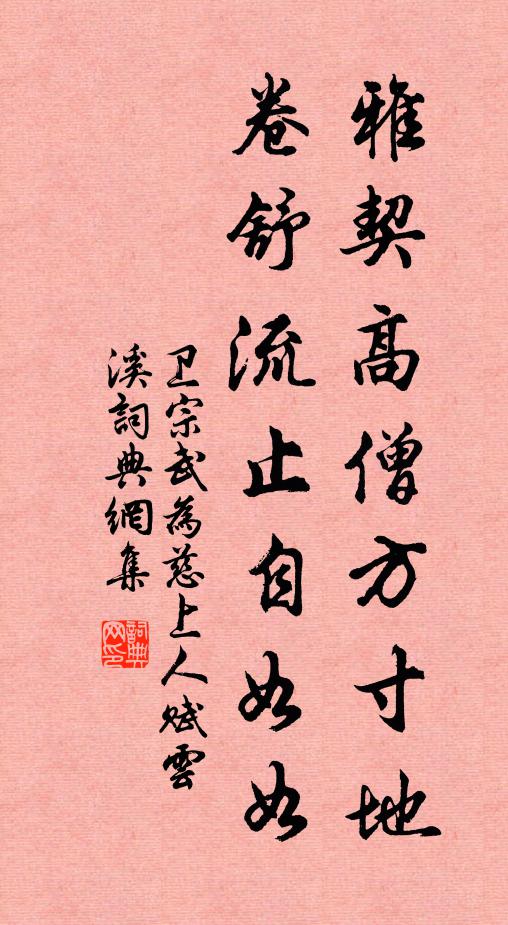 雅契高僧方寸地
卷舒流止自如如
卫宗武為慈上人赋雲
溪詞典網集
詞典
网印